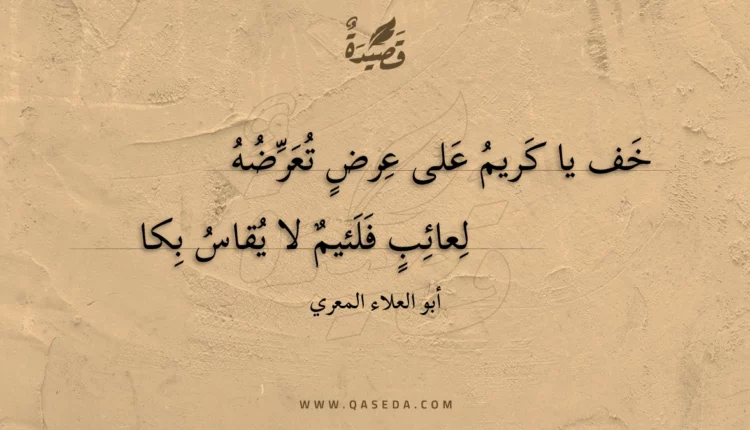 قَصِيْدَةٌ
خَف يا كَريمُ عَلى عِرضٍ تُعَرِّضُهُ
لِعائِبٍ فَلَئيمٌ لا يُقاسُ بِكا
أبو العلاء المعري
WWW.QASEDA.COM